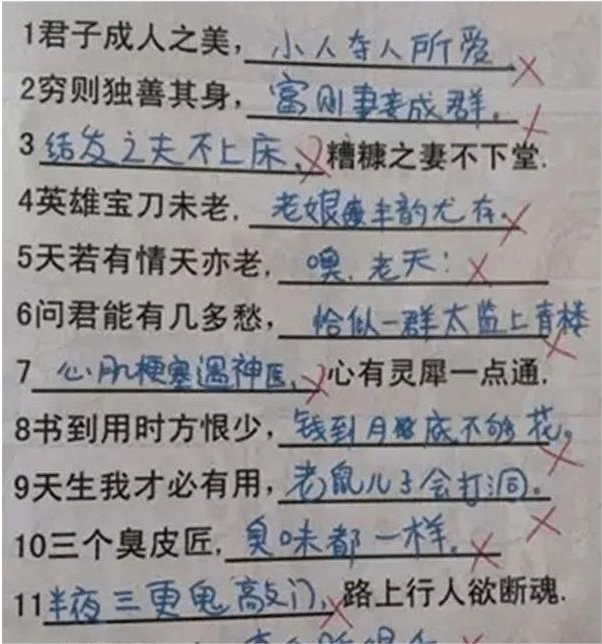 1君子成人之美，小人夺人所爱
2穷则独善其身，富则妻妾成群。
3结发之夫不上床，糟糠之妻不下堂.
4英雄宝刀未老，老娘丰韵尤存。
5天若有情天亦老，噢，老天！
6问君能有几多愁，恰似一群太监上青楼
7心肌梗塞遇神医，心有灵犀一点通.
8书到用时方恨少，钱到月底不够花。
9天生我才必有用，老鼠儿子会打洞。
10三个臭皮匠，臭味都一样。
11半夜三更鬼敲门，路上行人欲断魂.